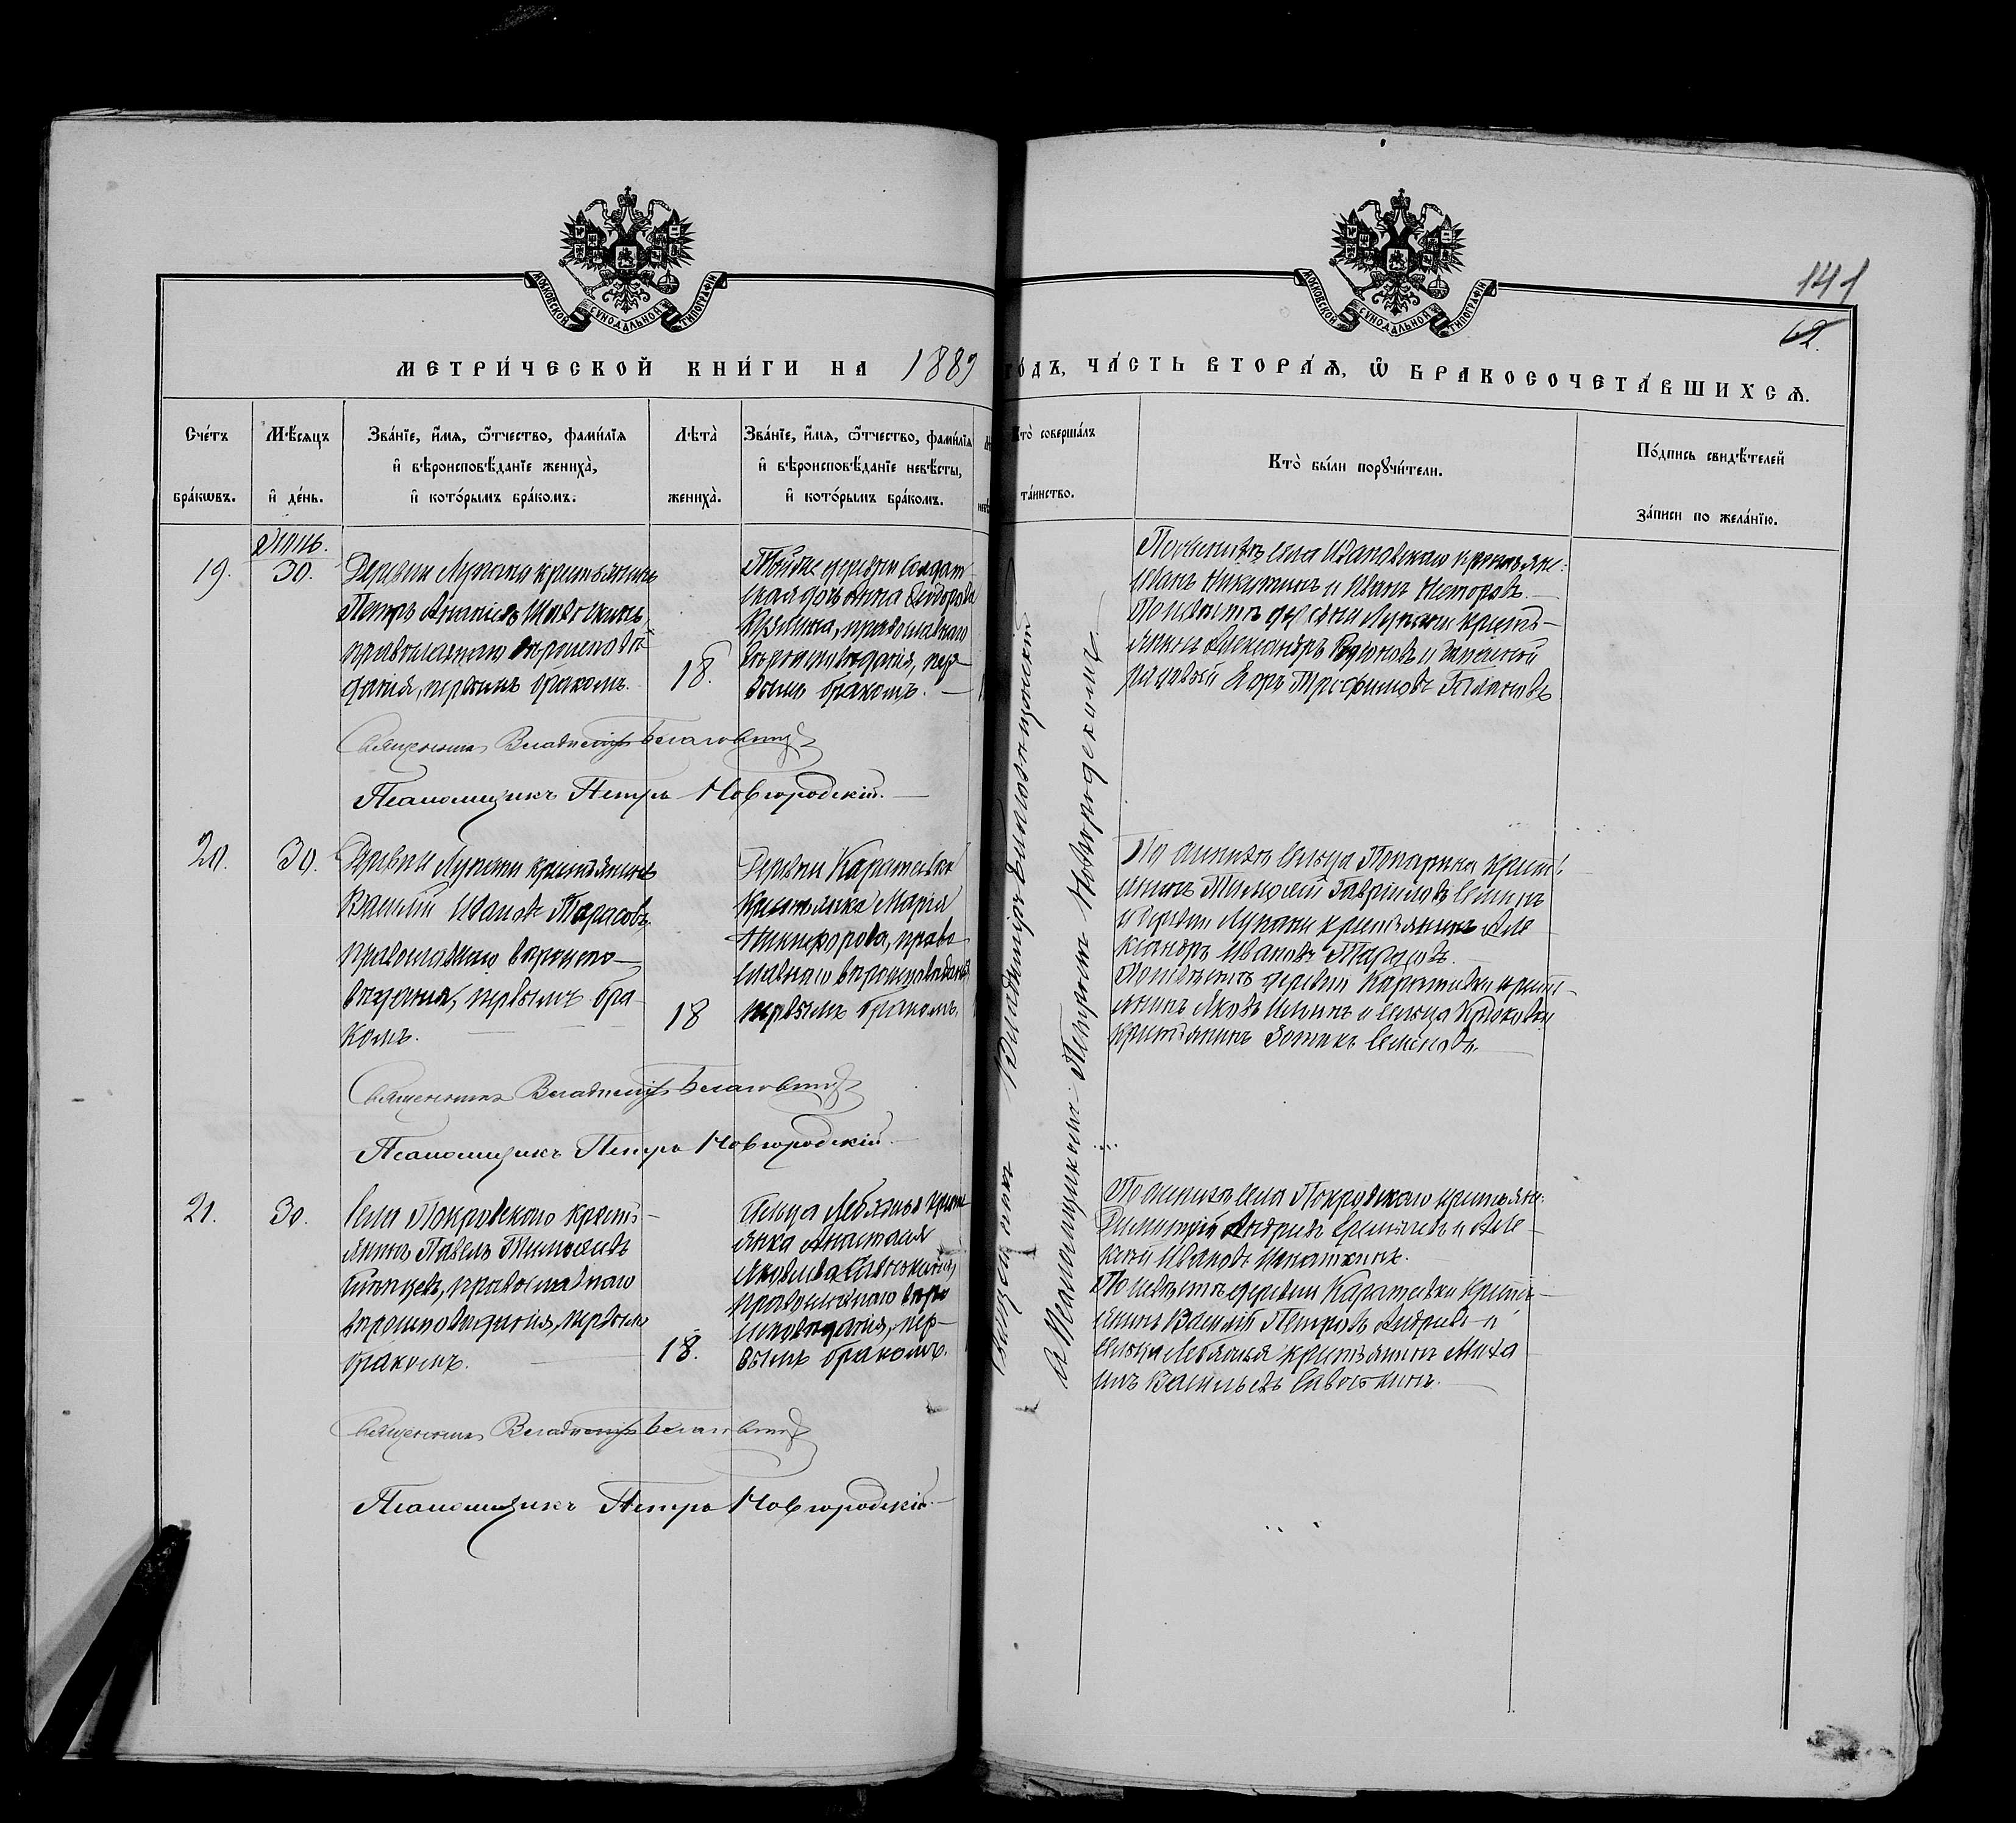 141
62.
МОСКОВСКОЙ СѴНОДАЛЬНОЙ ТИПОГРАФІИ
МОСКОВСКОЙ СѴНОДАЛЬНОЙ ТИПОГРАФІИ
МЕТРИ́ЧЕСКОЙ КНИ́ГИ НА 1889 ГО́ДЪ, ЧА́СТЬ ВТОРА́Ѧ, Ѽ БРАКОСОЧЕТА́ВШИХСѦ.
Сче́тъ бра́кωвъ.
Мѣ́сѧцъ и҆ де́нь.
Зва́нїе, и҆́мѧ, ѻ҆́тчество, фами́лїѧ
и҆ вѣроисповѣ́данїе жениха̀,
и҆ кото́рымъ бра́комъ.
Лѣта̀ жениха̀.
Зва́нїе, и҆́мѧ, ѻ҆́тчество, фами́лїѧ
и҆ вѣроисповѣ́данїе невѣ́сты,
и҆ кото́рымъ бра́комъ.
Кто̀ соверша́лъ
та́инство.
Кто̀ бы́ли порꙋчи́тели.
По́дпись свидѣ́телей
за́писи по жела́нїю.
19.
30.
Деревни Лупани крестьянинъ
Петръ Ананіевъ
православнаго вѣроисповѣ-
данія, первымъ бракомъ.
18.
Тойже деревни солдат-
ская дочь Анна Ѳедорова
православнаго
вѣроисповѣданія, пер-
вымъ бракомъ.
Священникъ Владиміръ
а Псаломщикомъ Петромъ Новгородскимъ
По женихѣ села Ивановскаго крестьяне:
Иванъ Никитинъ и Иванъ Несторовъ.
По невѣстѣ деревни Лупани кресть-
янинъ Александръ Родіоновъ и запасной
рядовой Егоръ Трофимовъ
Священникъ Владиміръ
Псаломщикъ Петръ Новгородскій.
20.
30.
Деревни Лупани крестьянинъ
Василій Ивановъ Тарасовъ,
православнаго вѣроиспо-
вѣданія, первымъ бра-
комъ.
18
Деревни Каратеевки
крестьянка Марія
Никифорова, право-
славнаго вѣроисповѣданія
первымъ бракомъ.
По женихѣ сельца крестъ-
янинъ Тимоѳей Гавриловъ
и деревни Лупани крестьянинъ Але-
ксандръ Ивановъ Тарасовъ.
По невѣстѣ деревни Каратеевки крест-
янинъ Яковъ Ильинъ и сельца
крестьянинъ Семеновъ.
Священникъ Владиміръ
Псаломщикъ Петръ Новгородскій.
21.
30.
Села Покровскаго кресть-
янинъ Павелъ Тимоѳеевъ
православнаго
вѣроисповѣданія, первымъ
бракомъ.
18.
Сельца Лебяжья кресть-
янка Анастасія
Яковлева Савоськина,
православнаго вѣро-
исповѣданія, пер-
вымъ бракомъ.
По женихѣ села Покровскаго крестьяне:
Димитрій Андреевъ и Але-
ксѣй Ивановъ
По невѣстѣ деревни Каратеевки кресть-
янинъ Василій Петровъ Андреевъ и
сельца Лебяжья крестьянинъ Миха-
илъ Васильевъ Савоськинъ.
Священникъ Владиміръ
Псаломщикъ Петръ Новгородскій.